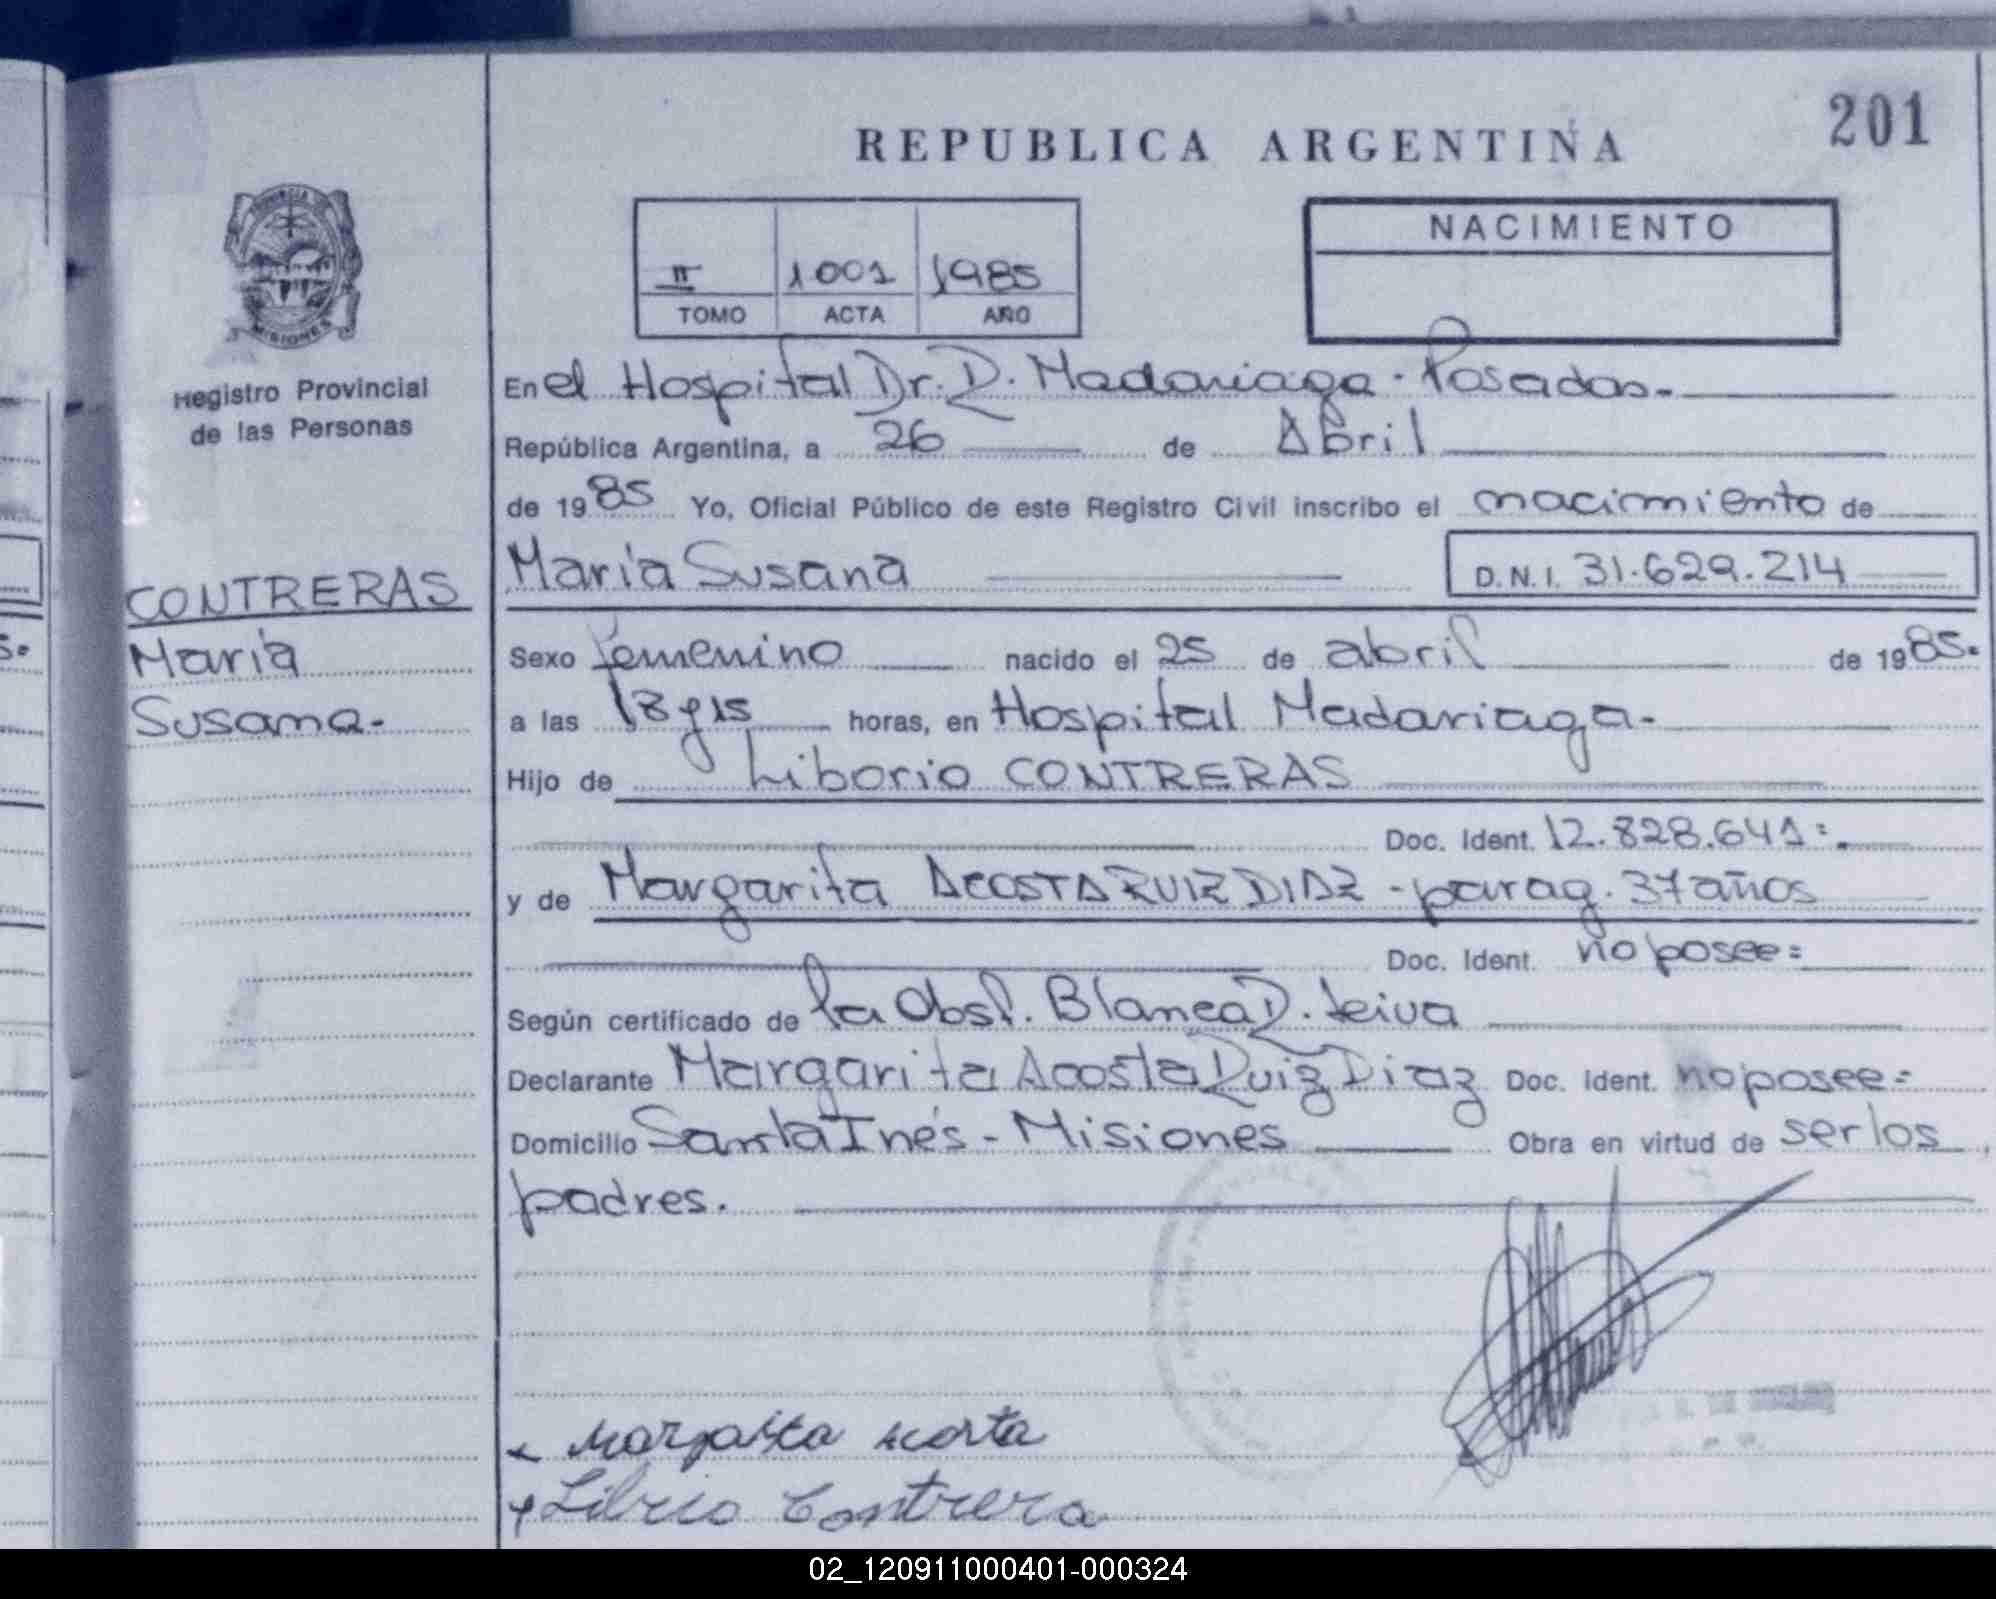 201
REPUBLICA ARGENTINA
NACIMIENTO
II 1001 1985
TOMO ACTA AÑO
MISIONES
Registro Provincial
de las Personas
CONTRERAS
Maria
Susana.
En el Hospital Dr. R. Madariaga - Posadas.
República Argentina, a 26 de Abril
de 1985 Yo, Oficial Público de este Registro Civil inscribo el nacimiento de
María Susana D.N.I. 31.629.214
Sexo femenino nacido el 25 de abril de 1985.
a las 18 y 15 horas, en Hospital Madariaga.
Hijo de Liborio CONTRERAS
Doc. Ident. 12.828.641:
y de Margarita ACOSTA RUIZ DIAZ - parag. 37 años
Doc. Ident. no posee=
Según certificado de la Obst. Blanca R. Leiva
Declarante Margarita Acosta Ruiz Diaz Doc. Ident. no posee=
Domicilio Santa Inés - Misiones Obra en virtud de ser los
padres.
Margarita Acosta
Librio Contrera
02_120911000401-000324